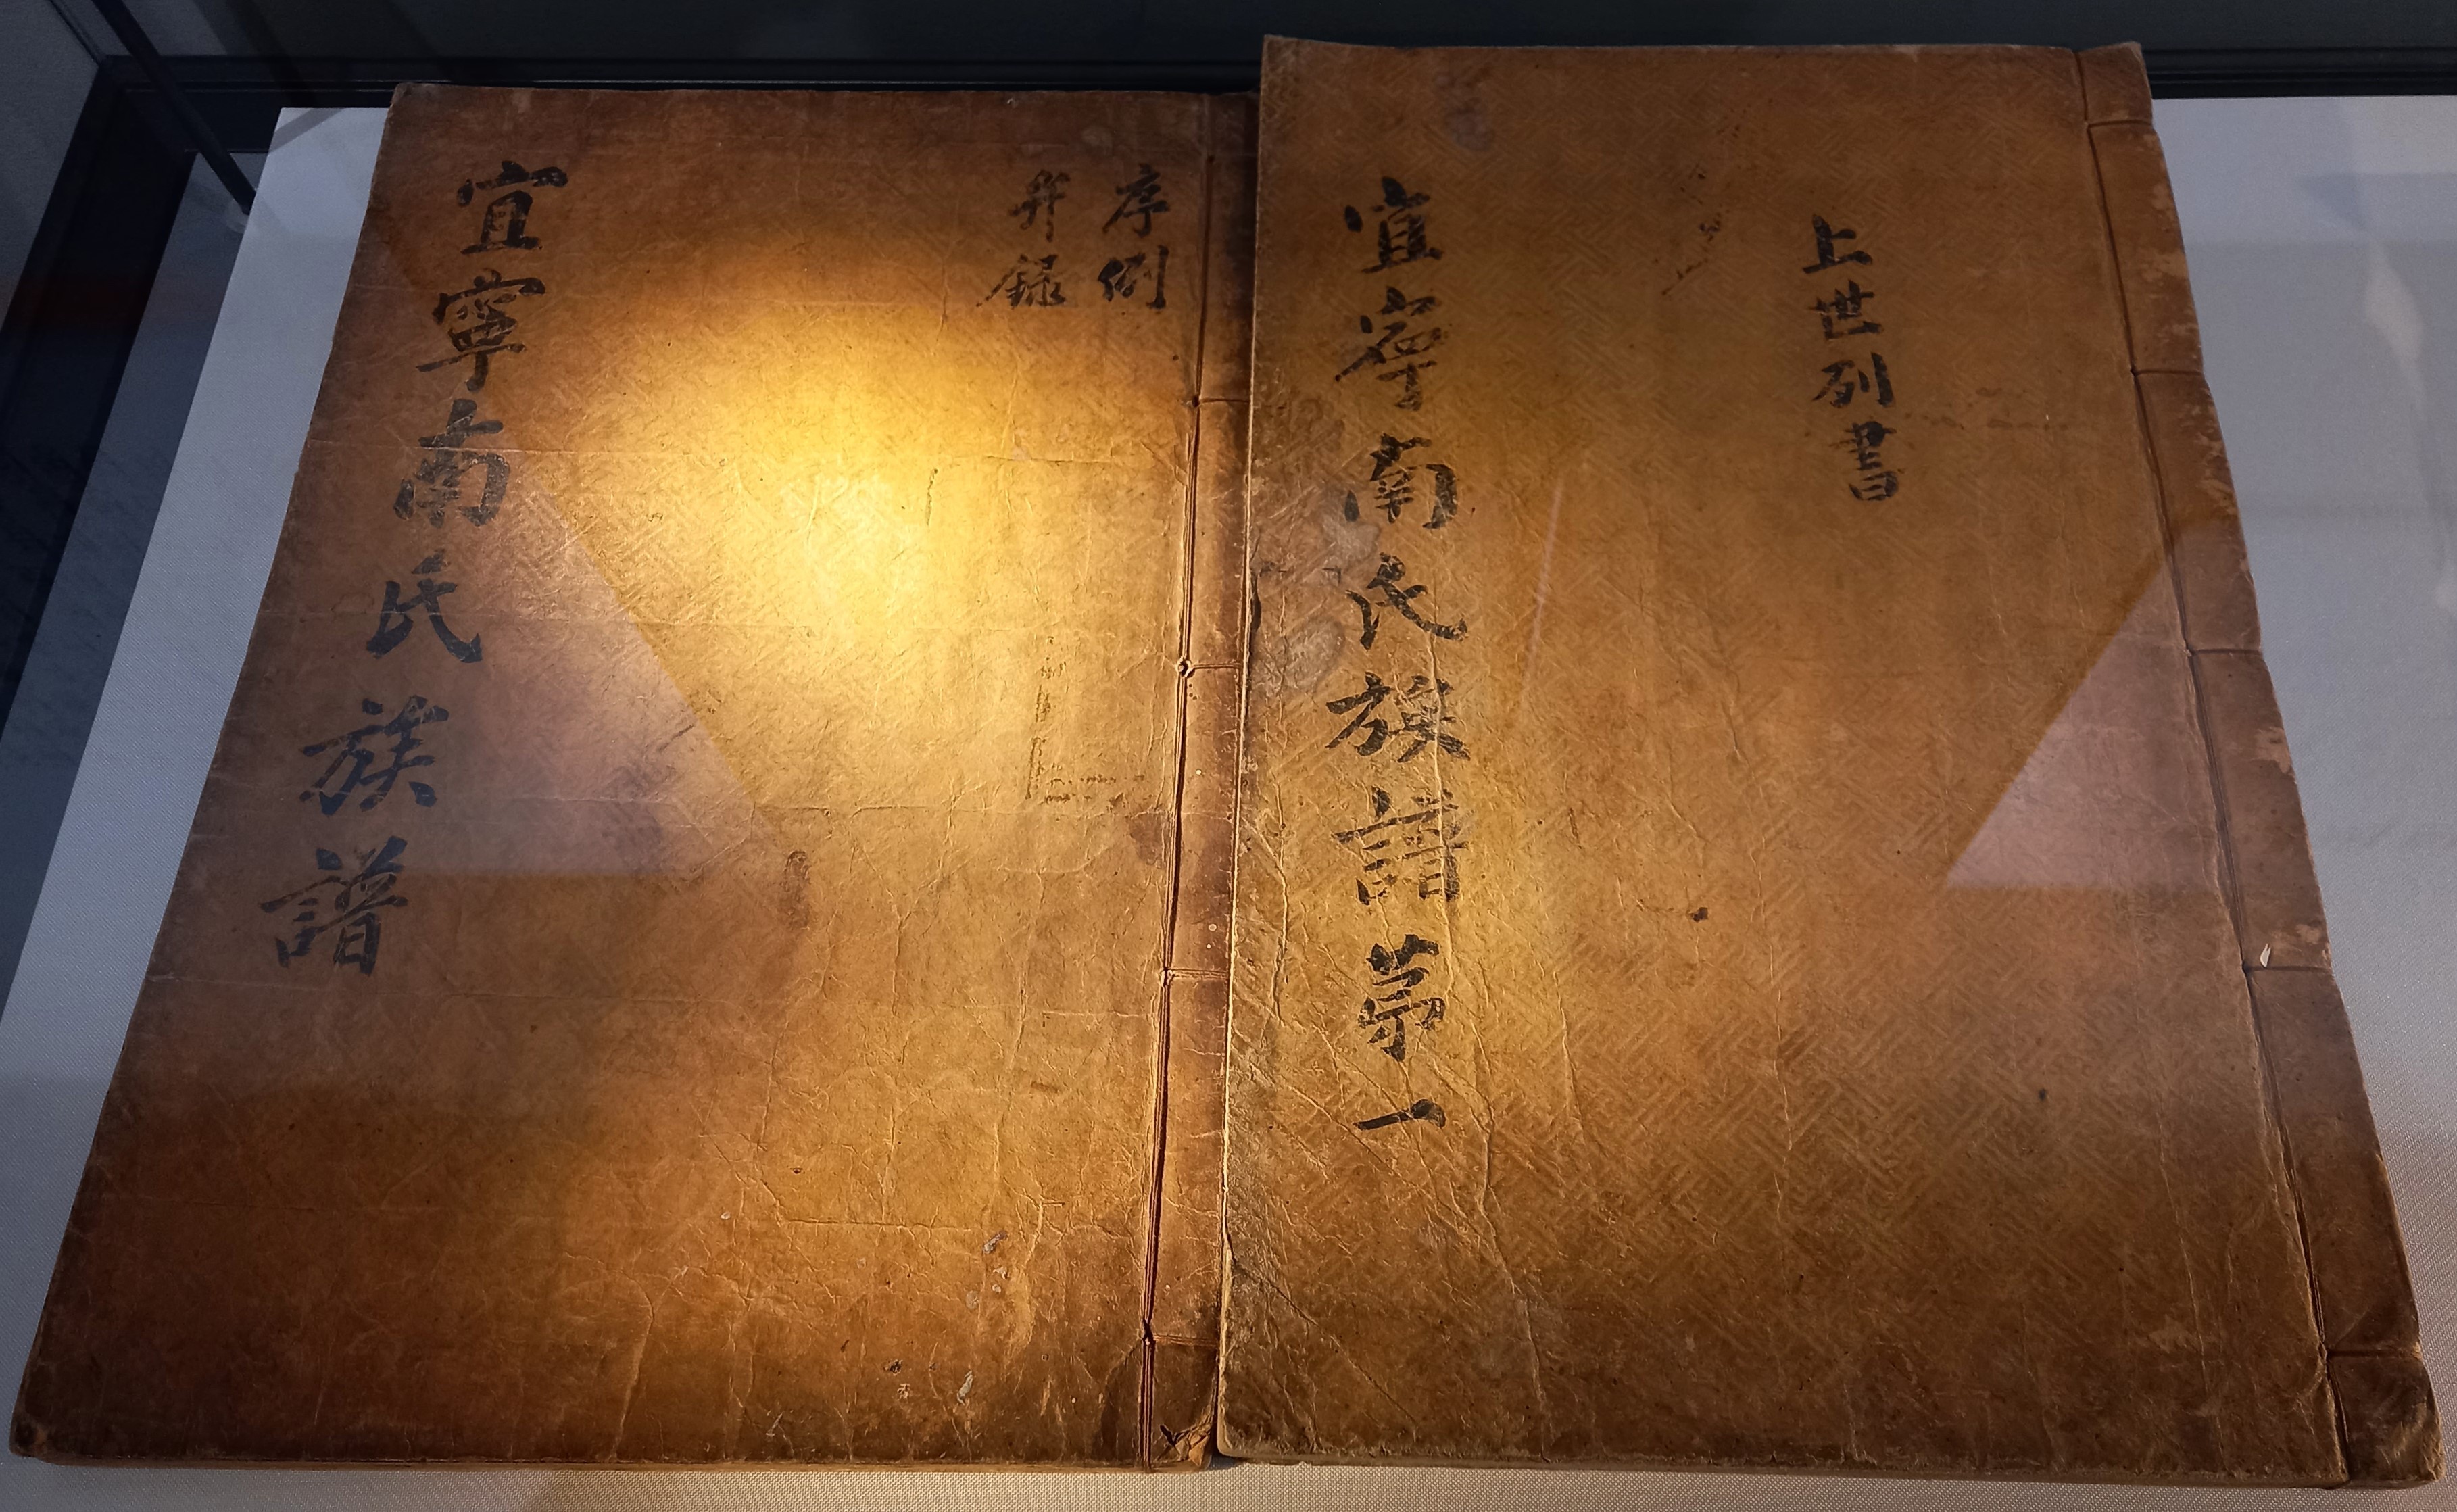 宜寧南氏族譜
序例
并録
宜寧南氏族譜苐一
上世列書